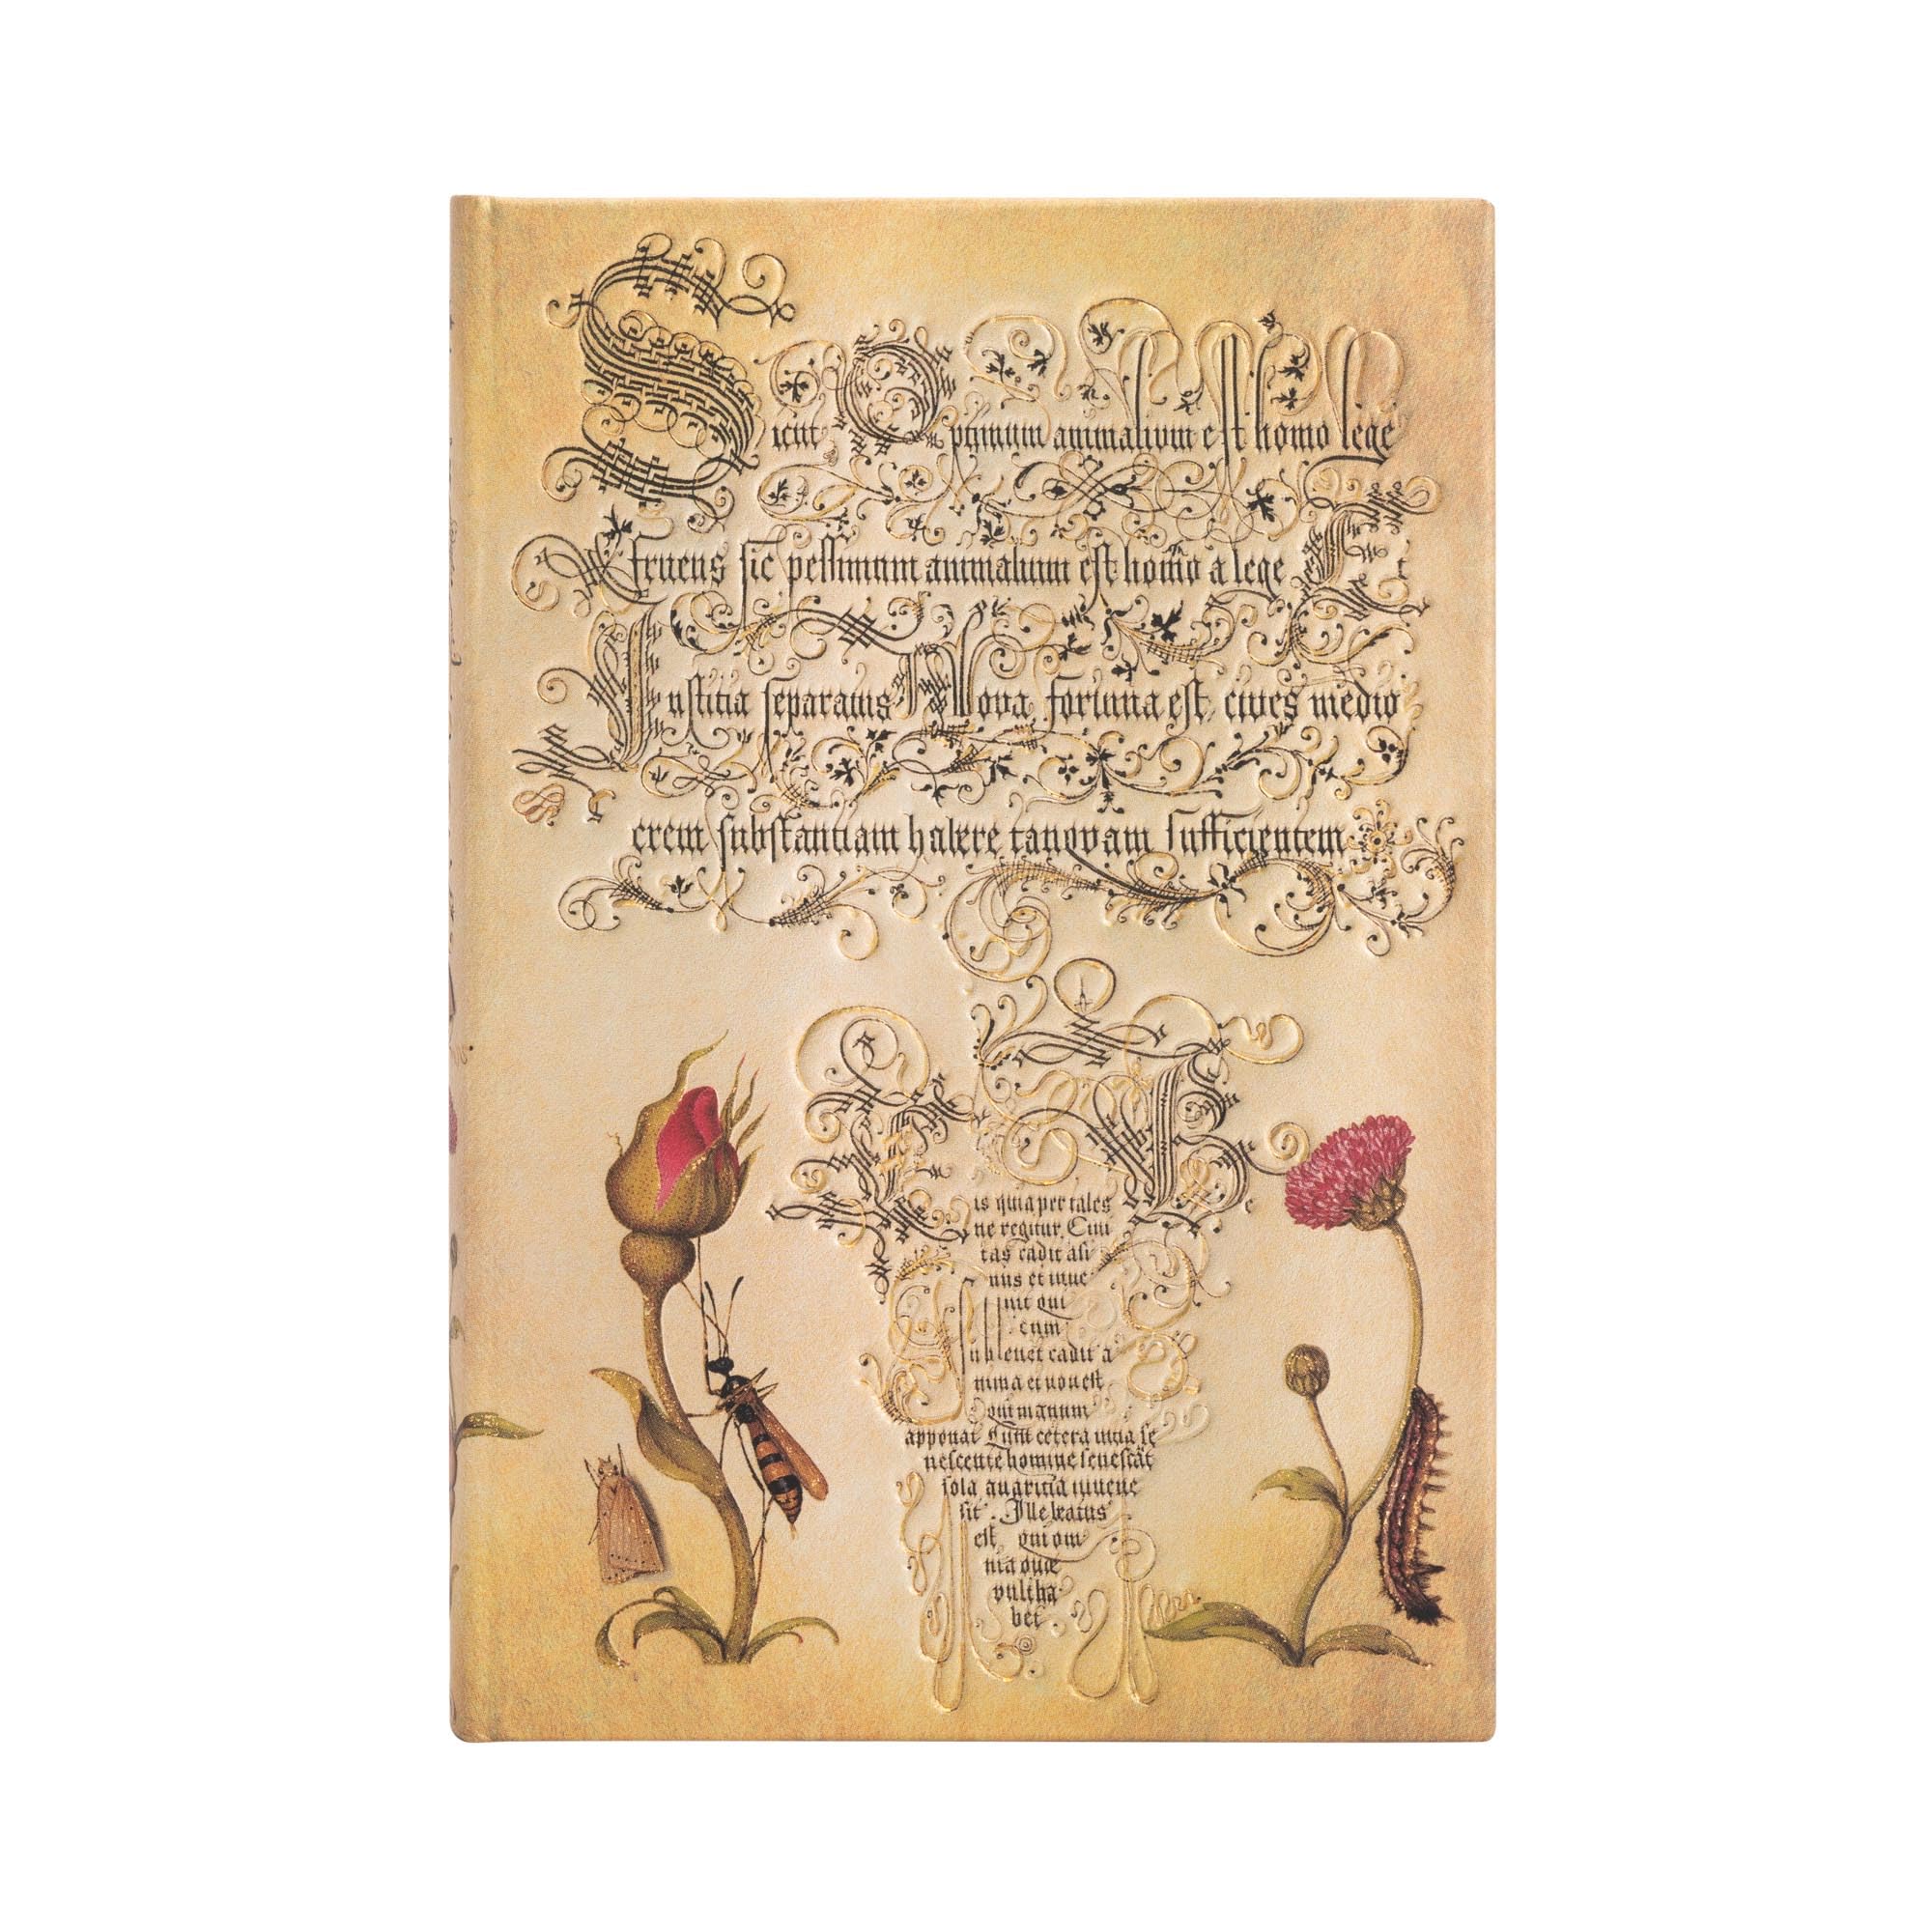 Sicut Optimum animalium est homo lege
fruens sic pessimum animalium est homo a lege Et
Iustitia separatus Nova fortuna est cives medio
crem substantiam habere tanquam sufficientem
is quia per tales Be
ne regitur. Civi
tas cadit asi
nus et inve
nit qui
eum
sublevet cadit a
nima et non est
qui manum
apponat Cum cetera vitia se
nescente homine senescāt
sola avaritia iuvene
sit. Ille beatus
est qui om
nia quæ
vult ha
bet.